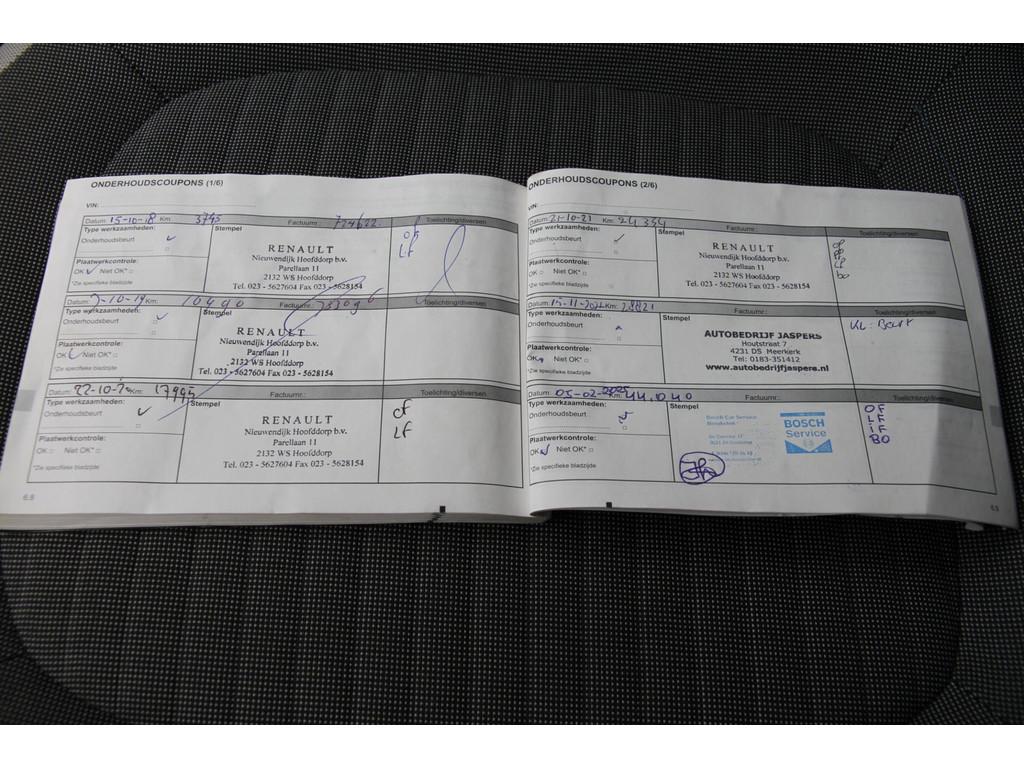 ONDERHOUDSCOUPONS (1/6)
VIN:
Datum: 15-10-18 Km: 3795 Factuurnr.: 724622 Toelichting/diversen
Type werkzaamheden: Stempel
Onderhoudsbeurt ✓
OF
LF
RENAULT
Nieuwendijk Hoofddorp b.v.
Parellaan 11
2132 WS Hoofddorp
Tel. 023 - 5627604 Fax 023 - 5628154
Plaatwerkcontrole:
OK ✓ Niet OK*
*Zie specifieke bladzijde
Datum: 9-10-19 Km: 10490 Factuurnr.: Toelichting/diversen
Type werkzaamheden: Stempel
Onderhoudsbeurt ✓
RENAULT
Nieuwendijk Hoofddorp b.v.
Parellaan 11
2132 WS Hoofddorp
Tel. 023 - 5627604 Fax 023 - 5628154
Plaatwerkcontrole:
OK Niet OK*
*Zie specifieke bladzijde
Datum: 22-10-20 Km: 17995 Factuurnr.: Toelichting/diversen
Type werkzaamheden: Stempel
Onderhoudsbeurt ✓
OF
LF
RENAULT
Nieuwendijk Hoofddorp b.v.
Parellaan 11
2132 WS Hoofddorp
Tel. 023 - 5627604 Fax 023 - 5628154
Plaatwerkcontrole:
OK Niet OK*
*Zie specifieke bladzijde
6.8
ONDERHOUDSCOUPONS (2/6)
VIN:
Datum: 21-10-21 Km: 24354 Factuurnr.: Toelichting/diversen
Type werkzaamheden: Stempel
Onderhoudsbeurt ✓
RENAULT
Nieuwendijk Hoofddorp b.v.
Parellaan 11
2132 WS Hoofddorp
Tel. 023 - 5627604 Fax 023 - 5628154
Plaatwerkcontrole:
OK Niet OK*
*Zie specifieke bladzijde
Factuurnr.: Toelichting/diversen
Type werkzaamheden: Stempel
Onderhoudsbeurt
KL. Beurt
AUTOBEDRIJF JASPERS
Houtstraat 7
4231 DS Meerkerk
Tel: 0183-351412
www.autobedrijfjaspers.nl
Plaatwerkcontrole:
OK Niet OK*
*Zie specifieke bladzijde
Datum: 05-02-2025 Km: 44.040 Factuurnr.: Toelichting/diversen
Type werkzaamheden: Stempel
Onderhoudsbeurt
OF
LF
IF
BO
Bosch Car Service
BOSCH
Service
Plaatwerkcontrole:
OK Niet OK*
*Zie specifieke bladzijde
6.9